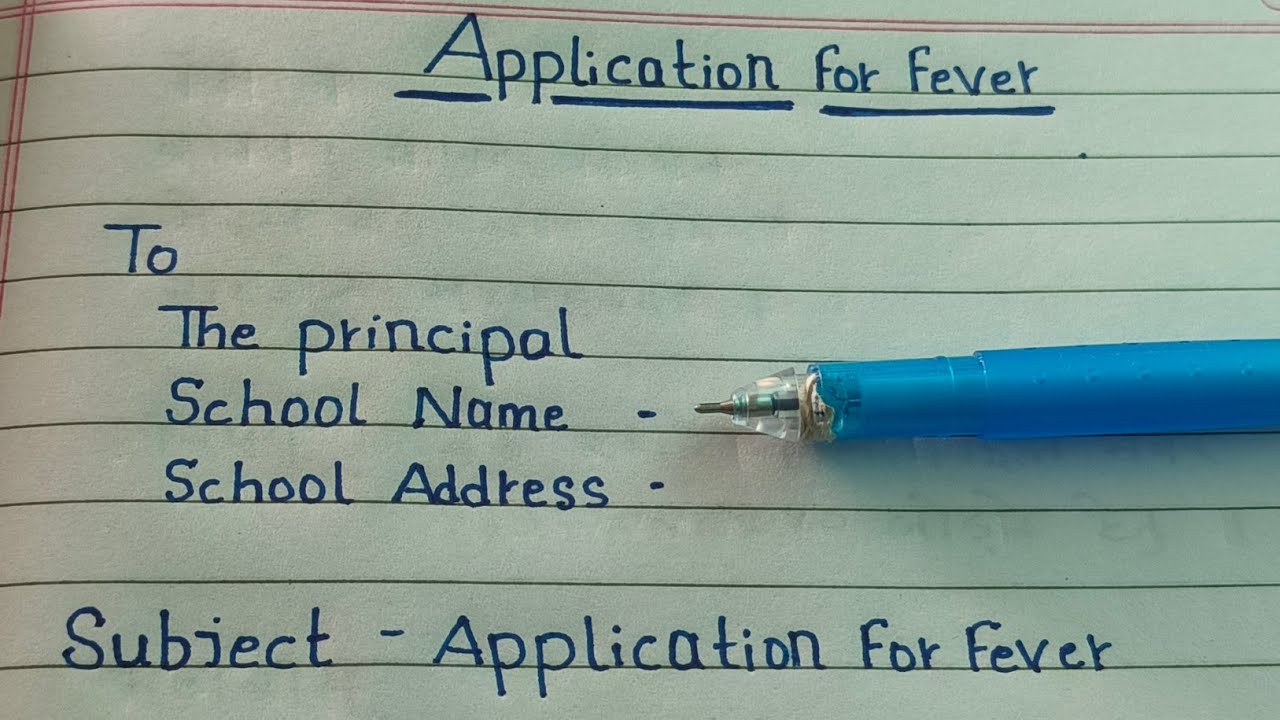 Application for Fever
To
The principal
School Name -
School Address -
Subject - Application For Fever